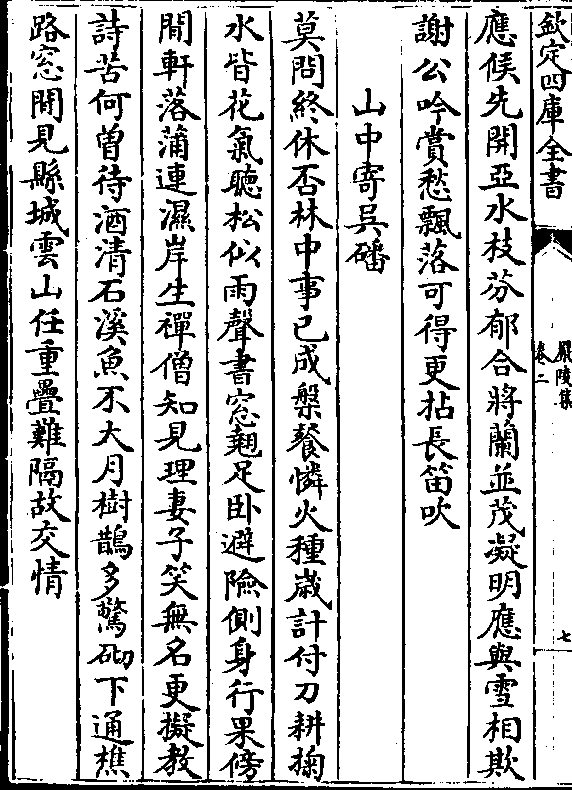 欽定四庫全書
嚴陵集
卷二
七
應候先開亞水枝芬郁合將蘭並茂凝明應與雪相欺
謝公吟賞愁飄落可得更拈長笛吹
山中寄吳磻
莫問終休否林中事已成槃飱憐火種歲計付刀耕掬
水皆花氣聽松似雨聲書窓翹足卧避險側身行果傍
閒軒落蒲連濕岸生禪僧知見理妻子笑無名更擬教
詩苦何曽待酒清石溪魚不大月樹鵲多驚砌下通樵
路窓開見縣城雲山任重疊難隔故交情